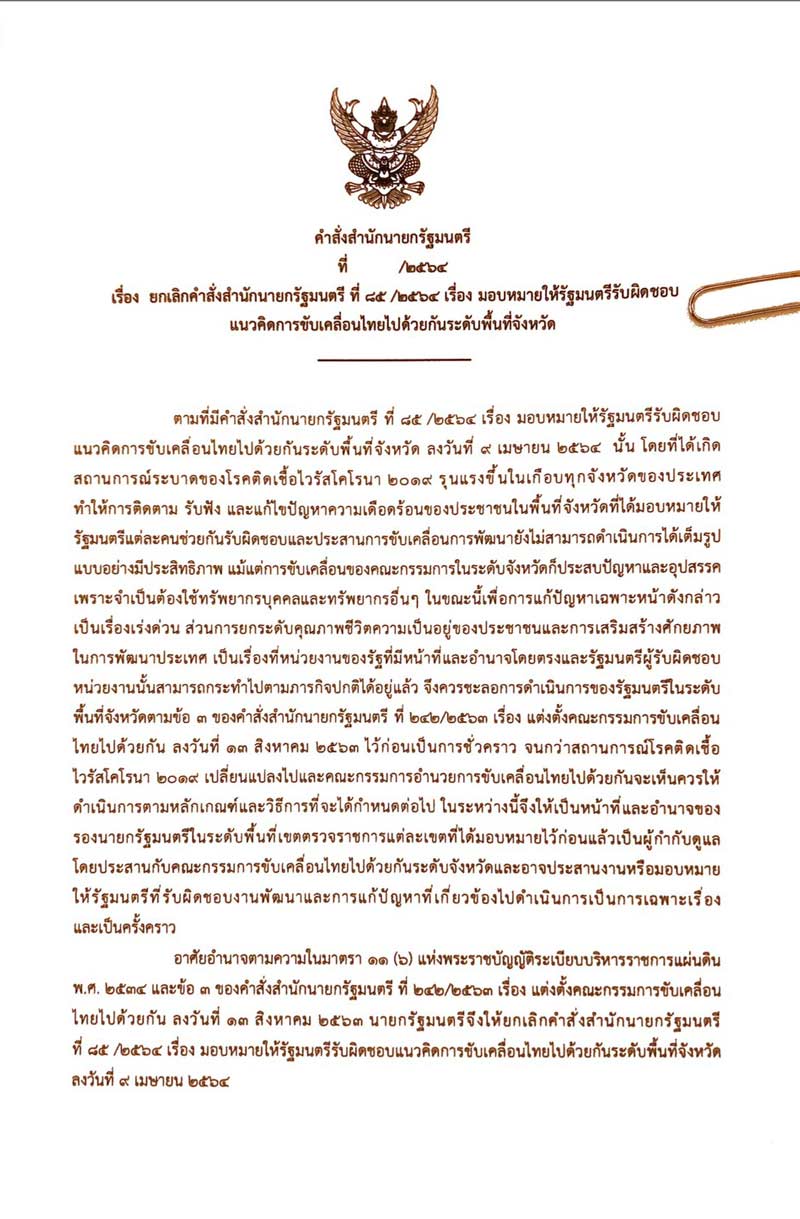 คำสั่งสำนักนายกรัฐมนตรี
ที่ /๒๕๖๔
เรื่อง ยกเลิกคำสั่งสำนักนายกรัฐมนตรี ที่ ๘๕ /๒๕๖๔ เรื่อง มอบหมายให้รัฐมนตรีรับผิดชอบ
แนวคิดการขับเคลื่อนไทยไปด้วยกันระดับพื้นที่จังหวัด
ตามที่มีคำสั่งสำนักนายกรัฐมนตรี ที่ ๘๕ /๒๕๖๔ เรื่อง มอบหมายให้รัฐมนตรีรับผิดชอบ
แนวคิดการขับเคลื่อนไทยไปด้วยกันระดับพื้นที่จังหวัด ลงวันที่ ๙ เมษายน ๒๕๖๔ นั้น โดยที่ได้เกิด
สถานการณ์ระบาดของโรคติดเชื้อไวรัสโคโรนา ๒๐๑๙ รุนแรงขึ้นในเกือบทุกจังหวัดของประเทศ
ทำให้การติดตาม รับฟัง และแก้ไขปัญหาความเดือดร้อนของประชาชนในพื้นที่จังหวัดที่ได้มอบหมายให้
รัฐมนตรีแต่ละคนช่วยกันรับผิดชอบและประสานการขับเคลื่อนการพัฒนายังไม่สามารถดำเนินการได้เต็มรูป
แบบอย่างมีประสิทธิภาพ แม้แต่การขับเคลื่อนของคณะกรรมการในระดับจังหวัดก็ประสบปัญหาและอุปสรรค
เพราะจำเป็นต้องใช้ทรัพยากรบุคคลและทรัพยากรอื่นๆ ในขณะนี้เพื่อการแก้ปัญหาเฉพาะหน้าดังกล่าว
เป็นเรื่องเร่งด่วน ส่วนการยกระดับคุณภาพชีวิตความเป็นอยู่ของประชาชนและการเสริมสร้างศักยภาพ
ในการพัฒนาประเทศ เป็นเรื่องที่หน่วยงานของรัฐที่มีหน้าที่และอำนาจโดยตรงและรัฐมนตรีผู้รับผิดชอบ
หน่วยงานนั้นสามารถกระทำไปตามภารกิจปกติได้อยู่แล้ว จึงควรชะลอการดำเนินการของรัฐมนตรีในระดับ
พื้นที่จังหวัดตามข้อ ๓ ของคำสั่งสำนักนายกรัฐมนตรี ที่ ๒๔๒/๒๕๖๓ เรื่อง แต่งตั้งคณะกรรมการขับเคลื่อน
ไทยไปด้วยกัน ลงวันที่ ๑๓ สิงหาคม ๒๕๖๓ ไว้ก่อนเป็นการชั่วคราว จนกว่าสถานการณ์โรคติดเชื้อ
ไวรัสโคโรนา ๒๐๑๙ เปลี่ยนแปลงไปและคณะกรรมการอำนวยการขับเคลื่อนไทยไปด้วยกันจะเห็นควรให้
ดำเนินการตามหลักเกณฑ์และวิธีการที่จะได้กำหนดต่อไป ในระหว่างนี้จึงให้เป็นหน้าที่และอำนาจของ
รองนายกรัฐมนตรีในระดับพื้นที่เขตตรวจราชการแต่ละเขตที่ได้มอบหมายไว้ก่อนแล้วเป็นผู้กำกับดูแล
โดยประสานกับคณะกรรมการขับเคลื่อนไทยไปด้วยกันระดับจังหวัดและอาจประสานงานหรือมอบหมาย
ให้รัฐมนตรีที่รับผิดชอบงานพัฒนาและการแก้ปัญหาที่เกี่ยวข้องไปดำเนินการเป็นการเฉพาะเรื่อง
และเป็นครั้งคราว
อาศัยอำนาจตามความในมาตรา ๑๑ (๖) แห่งพระราชบัญญัติระเบียบบริหารราชการแผ่นดิน
พ.ศ. ๒๕๓๔ และข้อ ๓ ของคำสั่งสำนักนายกรัฐมนตรี ที่ ๒๔๒/๒๕๖๓ เรื่อง แต่งตั้งคณะกรรมการขับเคลื่อน
ไทยไปด้วยกัน ลงวันที่ ๑๓ สิงหาคม ๒๕๖๓ นายกรัฐมนตรีจึงให้ยกเลิกคำสั่งสำนักนายกรัฐมนตรี
ที่ ๘๕ /๒๕๖๔ เรื่อง มอบหมายให้รัฐมนตรีรับผิดชอบแนวคิดการขับเคลื่อนไทยไปด้วยกันระดับพื้นที่จังหวัด
ลงวันที่ ๙ เมษายน ๒๕๖๔